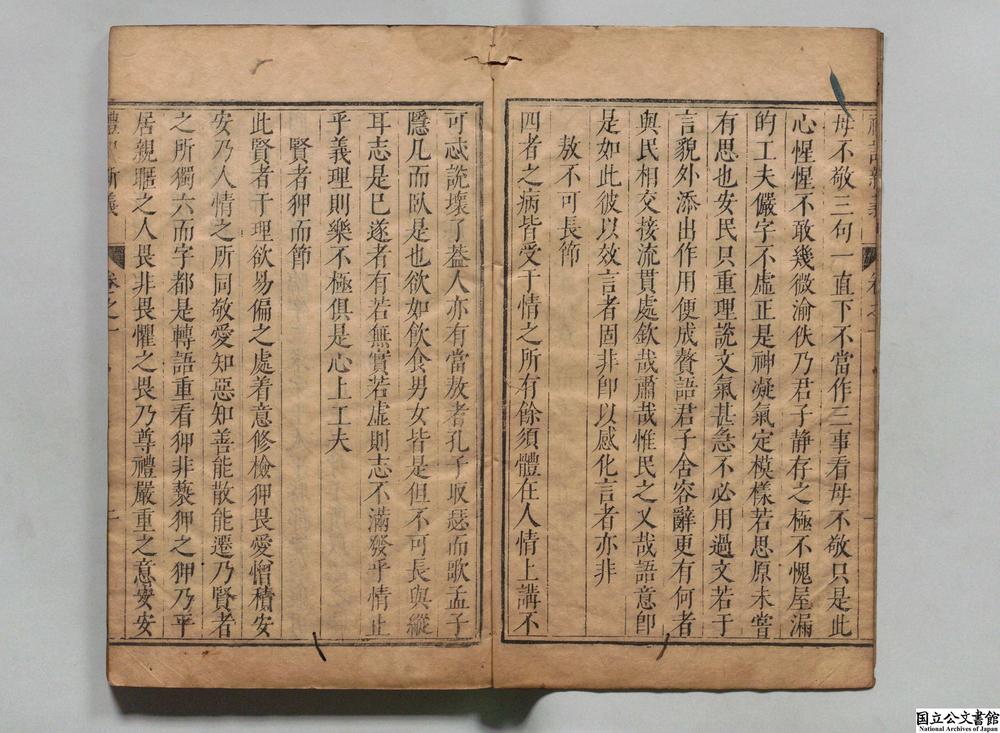 毋不敬三句一直下不當作三事看毋不敬只是此
心惺惺不敢幾微渝佚乃君子静存之極不愧屋漏
的工夫儼字不虛正是神凝氣定模樣若思原未嘗
有思也安民只重理說文氣甚急不必用過文若于
言貌外添出作用便成贅語君子舍容辭更有何者
與民相交接流貫處欽哉肅哉惟民之又哉語意卽
是如此彼以效言者固非卽以感化言者亦非
敖不可長節
四者之病皆受于情之所有餘須體在人情上講不
可忒說壞了葢人亦有當敖者孔子取瑟而歌孟子
隱几而臥是也欲如飲食男女皆是但不可長與縱
耳志是巳遂者有若無實若虛則志不滿發乎情止
乎義理則樂不極俱是心上工夫
賢者狎而節
此賢者于理欲易偏之處着意修檢狎畏愛憎積安
安乃人情之所同敬愛知惡知善能散能遷乃賢者
之所獨六而字都是轉語重看狎非褻狎之狎乃平
居親暱之人畏非畏懼之畏乃尊禮嚴重之意安安
禮記新義
卷之一
二
国立公文書館
National Archives of Japan